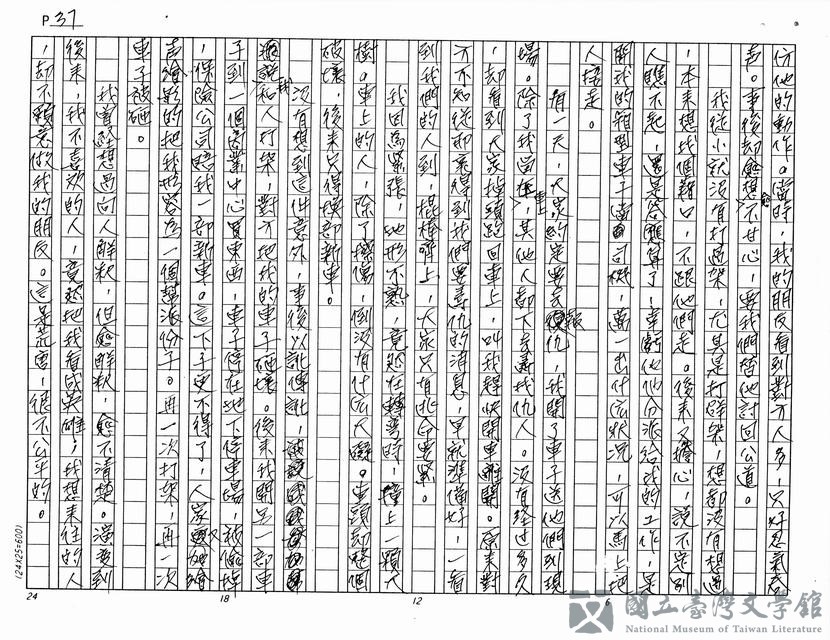 P37
份他的動作。當時，我的朋友看到對方人多，只好忍氣吞
聲。事後却愈想愈不甘心，要我們替他討回公道。
我從小就沒有打過架，尤其是打群架，想都沒有想過
，本來想找個藉口，不跟他們走。後來又擔心，說不定別
人瞧不起，還是答應算了，幸虧他分派給我的工作，是
開我的箱型車子當司機，萬一出什麽狀況，可以馬上把
人接走。
有一天，大家約定要去報仇，我開了車子送他們到現
場。除了我留在車上，其他人都下去尋找仇人。沒有經過多久
，却看到大家掉頭跑回車上，叫我趕快開車離開。原來對
方不知從那裏得到我們要尋仇的消息，早就準備好，一看
到我們的人到，棍棒齊上，大家只有逃命要緊。
我因爲緊張，地形不熟，竟然在轉彎時，撞上一顆大
樹。車上的人，除了擦傷，倒沒有什麽大礙。車頭却整個
破壞，後來只得換部新車。
沒有想到這件意外，事後以訛傳訛，
說我和人打架，對方把我的車子砸壞。後來我開另一部車
子到一個商業中心買東西，車子停在地下停車場，被偷掉
，保險公司賠我一部新車。這下子更不得了，人家又
聲繪影的把我形容爲一個幫派份子。再一次打架，再一次
車子被砸。
我曾經想過向人解釋，但愈解釋，愈不清楚。演變到
後來，我不喜歡的人，竟然把我看成英雄，我想來往的人
，却不願意做我的朋友。這是在害，很不公平的。
24
18
12
6
(24X25=600)
國立臺灣文學館
National Museum of Taiwan Literature